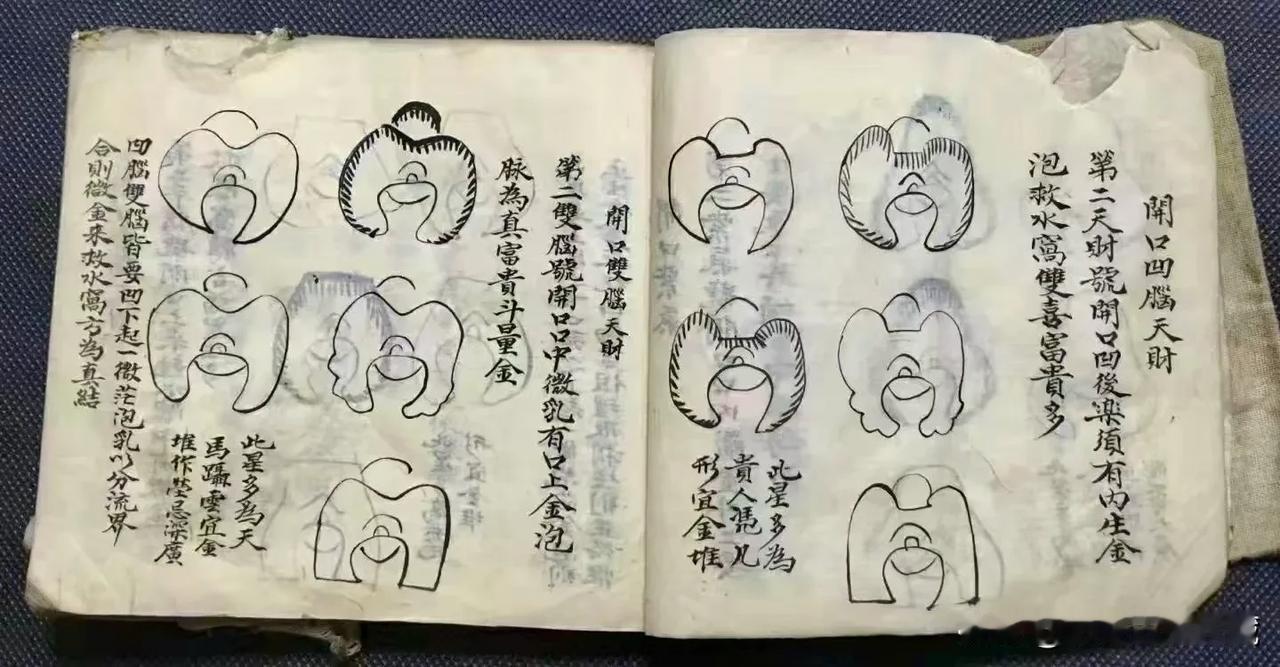 開口凹腦天財
第二天財號開口凹後楽須有內生金
泡救水窩雙喜富貴多
此星多為
貴人凴几
形宜金堆
開口雙腦天財
第二雙腦號開口中微乳有口上金泡
脉為真富貴斗量金
此星多為天
馬躡雲宜金
堆作塋忌深廣
凹腦雙腦皆要凹下起一微茫泡乳以分流界
合則微金來救水窩方為真結